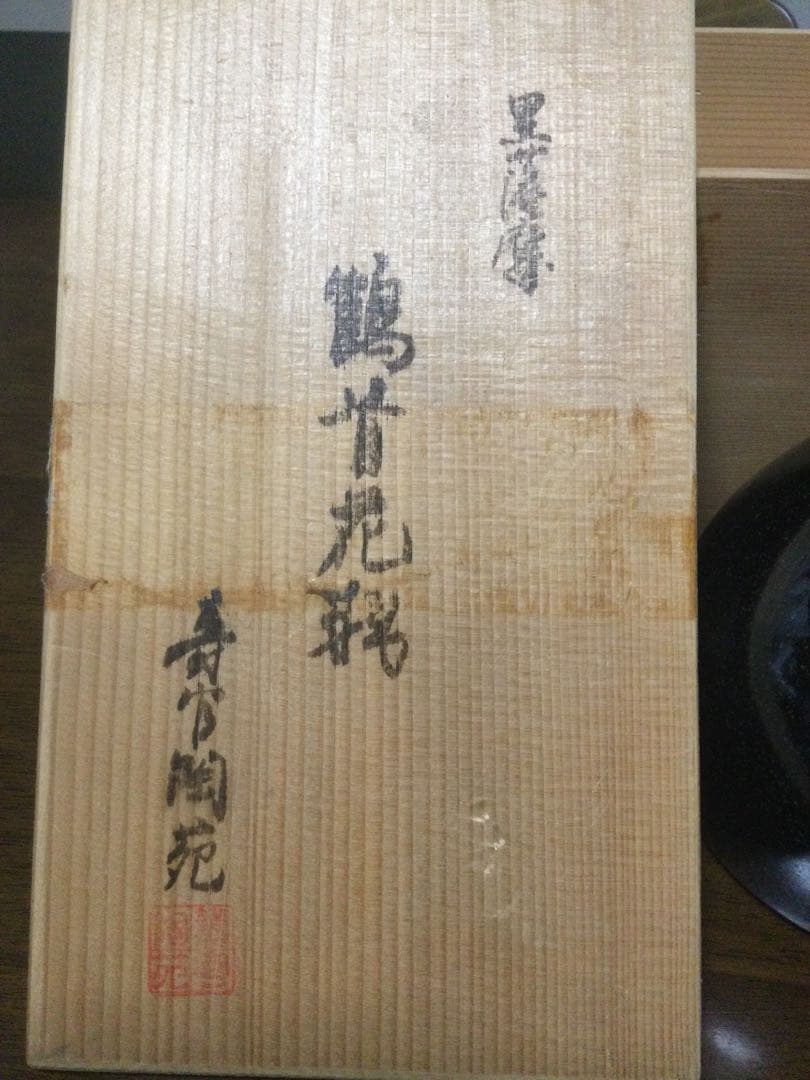 黒薩摩
鶴首花瓶
寿官陶苑